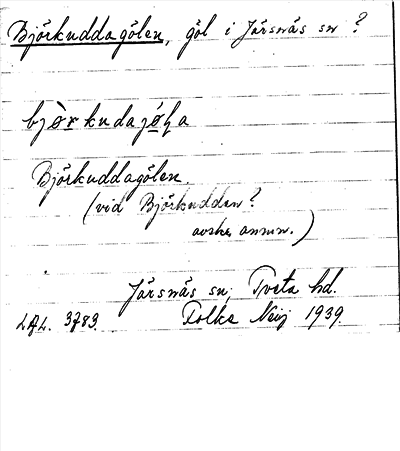 Björkuddagölen, göl i Järsnäs sn?
björkudajöḷa
Björkuddagölen.
(vid Björkudden?
avskr. anmn.)
Järsnäs sn, Tveta hd.
LAL. 3783. Folke Neij 1939.